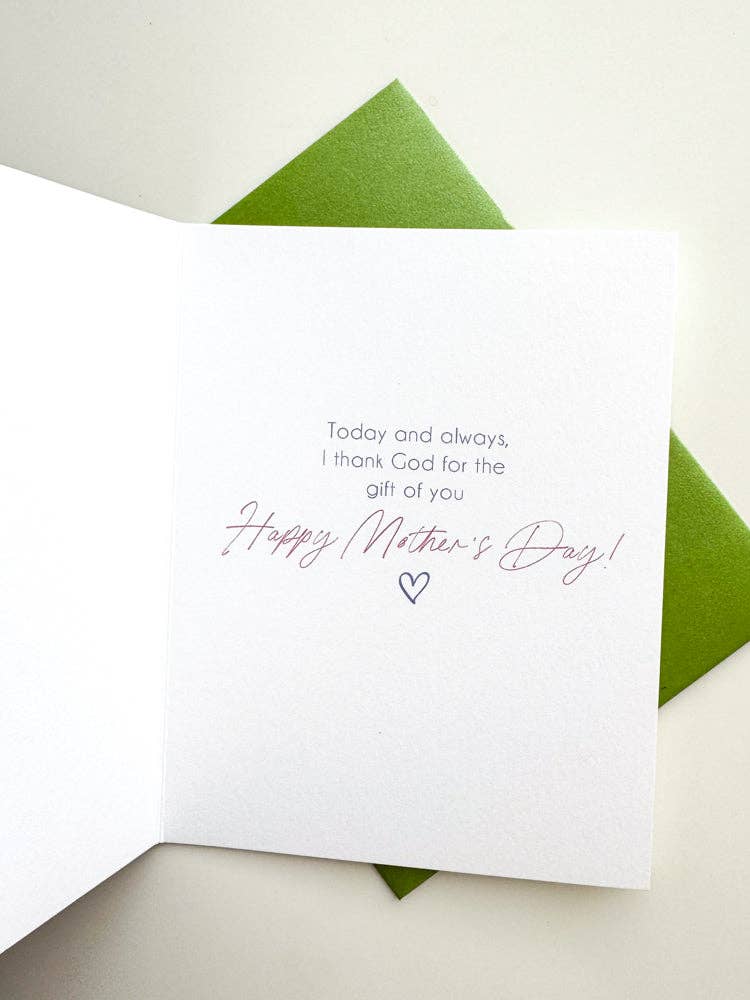 Today and always,
I thank God for the
gift of you
Happy Mother's Day!